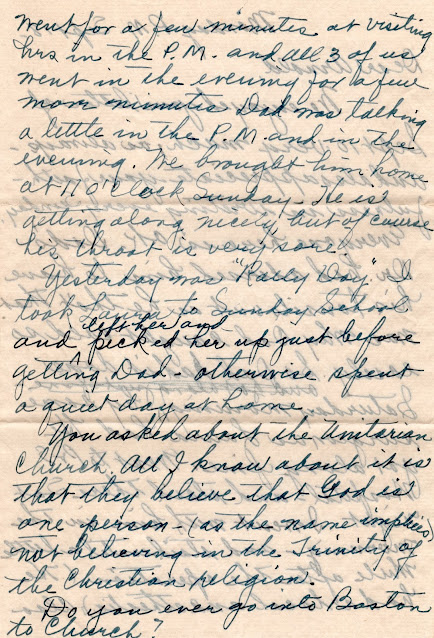 went for a few minutes at visiting
hrs in the P.M. and all 3 of us
went in the evening for a few
more minutes Dad was talking
a little in the P.M. and in the
evening. We brought him home
at 11 o'clock Sunday. He is
getting along nicely but of course
his throat is very sore.
Yesterday was "Rally Day" I
took Laura to Sunday School
left her and
and picked her up just before
getting Dad - otherwise spent
a quiet day at home.
You asked about the Unitarian
Church. All I know about it is
that they believe that God is
one person - (as the name implies)
not believing in the Trinity of
the Christian religion.
Do you ever go into Boston
to Church?